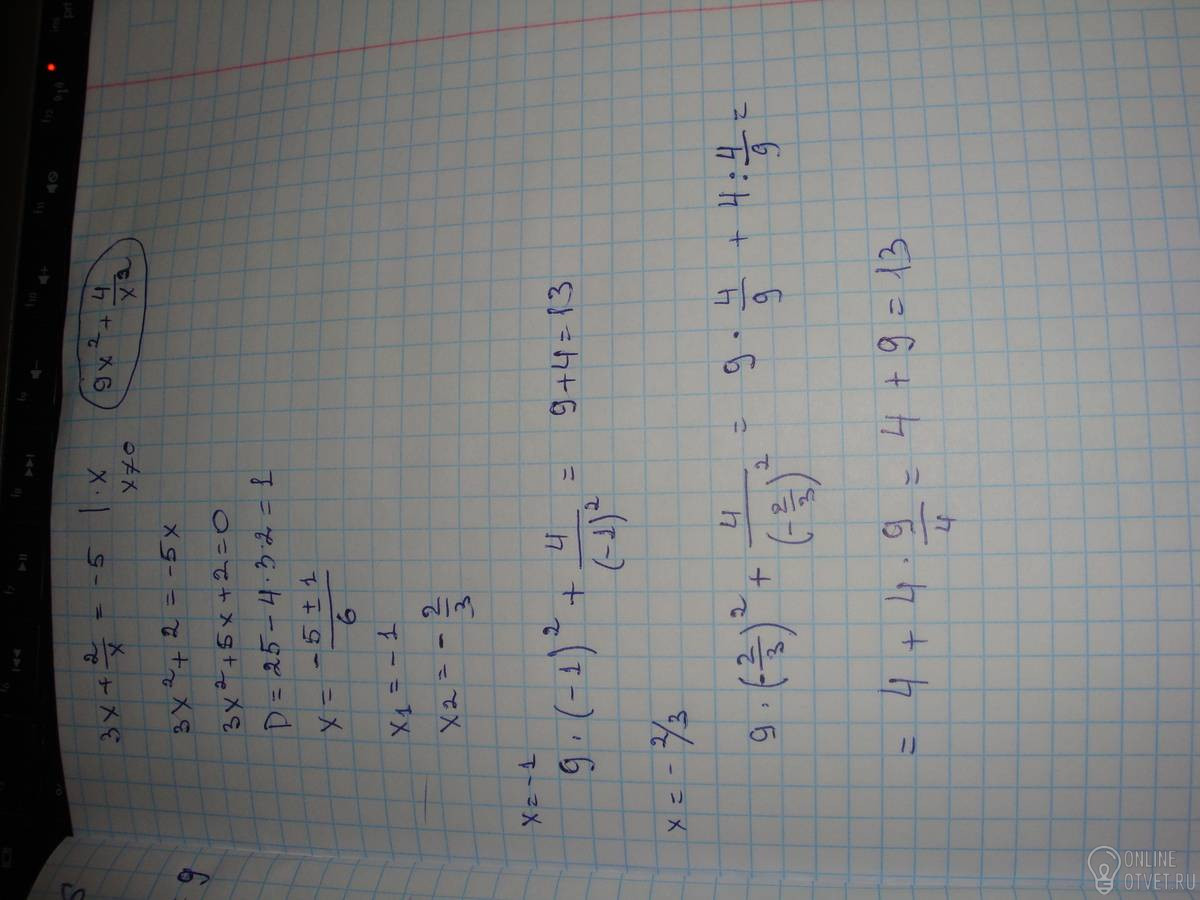 3x + 2/x = -5 | ·x 9x² + 4/x²
x≠0
3x² + 2 = -5x
3x² + 5x + 2 = 0
D = 25 - 4·3·2 = 1
x = (-5 ± 1)/6
x1 = -1
x2 = - 2/3
x = -1
9·(-1)² + 4/(-1)² = 9 + 4 = 13
x = - 2/3
9·(-2/3)² + 4/(-2/3)² = 9 · 4/9 + 4 : 4/9 =
= 4 + 4 · 9/4 = 4 + 9 = 13
ONLINE
OTVET.RU